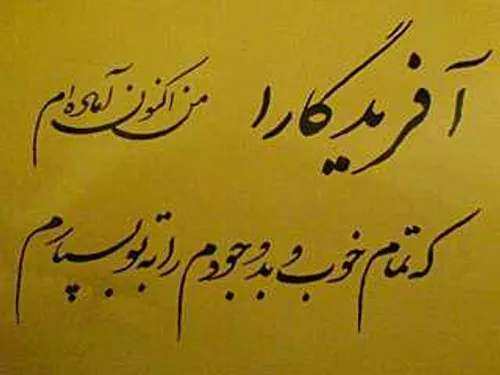 آفریدگارا من اکنون آماده ام
که تمام خوب و بد وجودم را به تو بسپارم